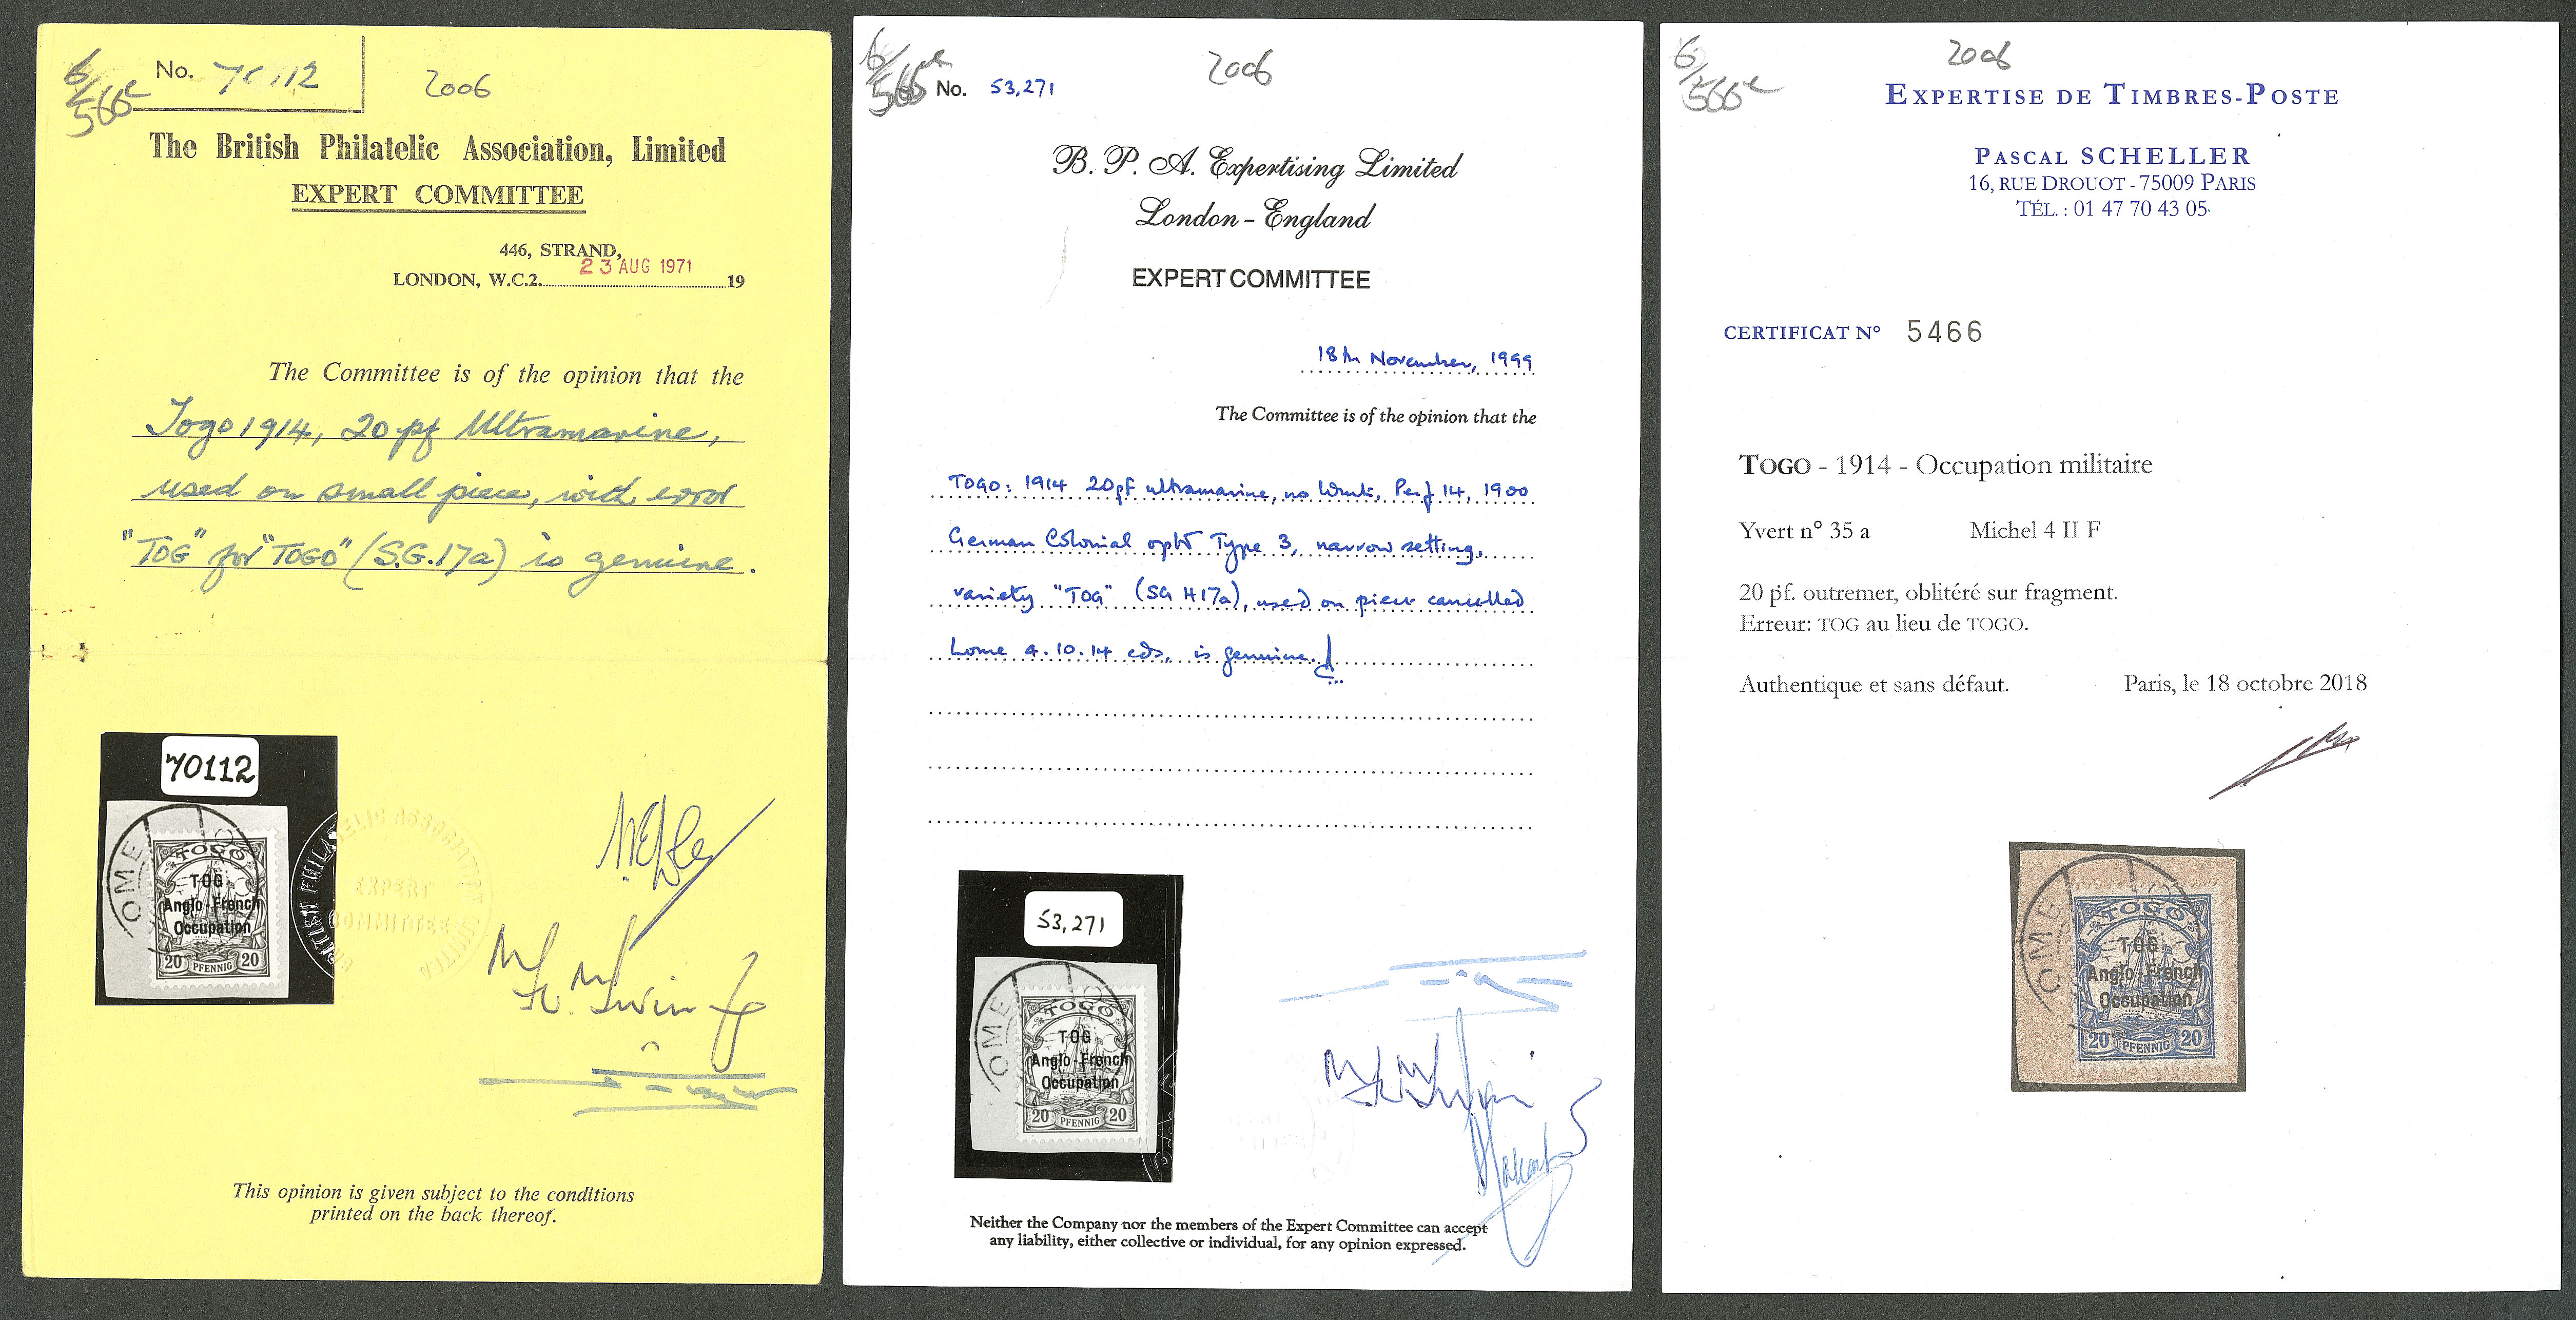 6/566e
No. 70112
2006
The British Philatelic Association, Limited
EXPERT COMMITTEE
446, STRAND,
23 AUG 1971
LONDON, W.C.2. 19
The Committee is of the opinion that the
Togo 1914, 20 pf Ultramarine,
used on small piece, with error
"TOG" for "TOGO" (S.G.17a) is genuine.
70112
OME
TOGO
TOG
Anglo-French
Occupation
20 PFENNIG 20
BRITISH PHILATELIC ASSOCIATION LIMITED
EXPERT
COMMITTEE
This opinion is given subject to the conditions
printed on the back thereof.
6/566e
No. 53,271
2006
B. P. A. Expertising Limited
London - England
EXPERT COMMITTEE
18th November, 1999
The Committee is of the opinion that the
TOGO: 1914 20pf ultramarine, no Wmk, Perf 14, 1900
German Colonial optd Type 3, narrow setting,
variety "TOG" (SG H17a), used on piece cancelled
Lome 4.10.14 cds, is genuine.
53,271
OME
TOGO
TOG
Anglo-French
Occupation
20 PFENNIG 20
Neither the Company nor the members of the Expert Committee can accept
any liability, either collective or individual, for any opinion expressed.
6/566e
2006
EXPERTISE DE TIMBRES-POSTE
PASCAL SCHELLER
16, RUE DROUOT - 75009 PARIS
TÉL. : 01 47 70 43 05
CERTIFICAT N° 5466
TOGO - 1914 - Occupation militaire
Yvert n° 35 a Michel 4 II F
20 pf. outremer, oblitéré sur fragment.
Erreur: TOG au lieu de TOGO.
Authentique et sans défaut. Paris, le 18 octobre 2018
OME
TOGO
TOG
Anglo-French
Occupation
20 PFENNIG 20